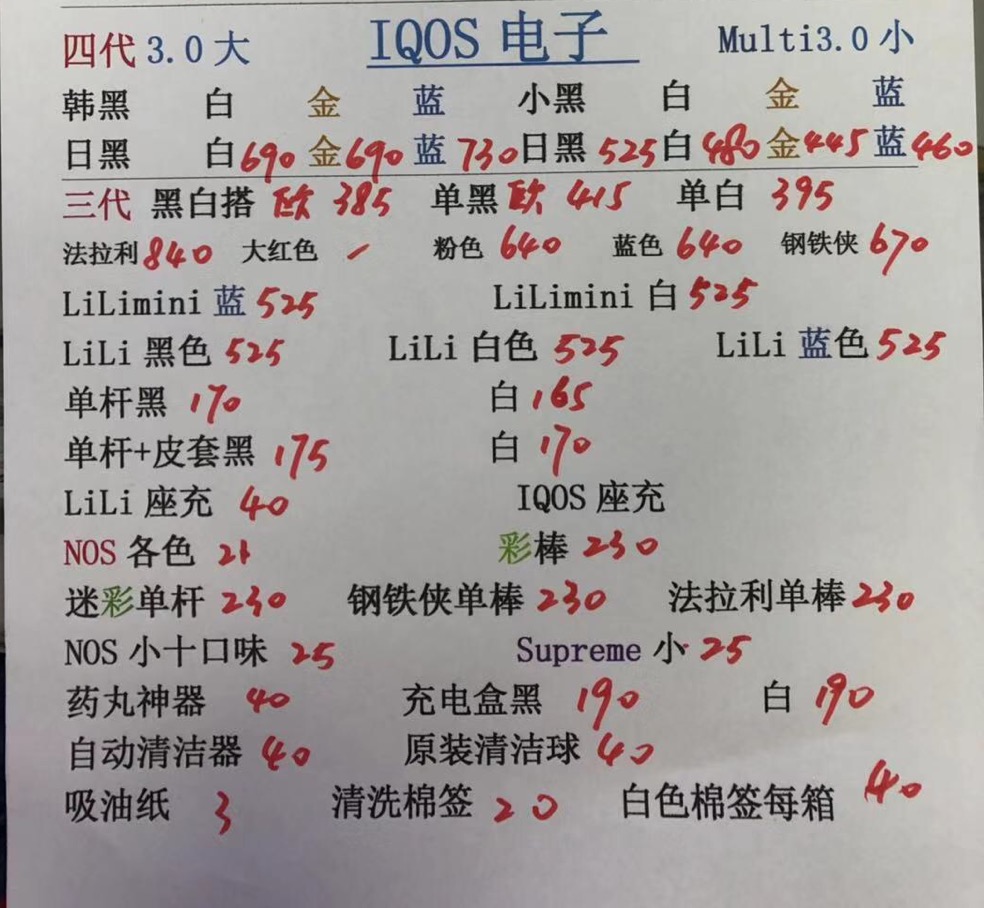 四代 3.0大 IQOS 电子 Multi3.0小
韩黑 白 金 蓝 小黑 白 金 蓝
日黑 白690 金690 蓝 730 日黑 525 白 480 金445 蓝460
三代 黑白搭 欧 385 单黑 欧 415 单白 395
法拉利840 大红色 粉色 640 蓝色 640 钢铁侠 670
LiLimini 蓝 525 LiLimini 白 525
LiLi 黑色 525 LiLi 白色 525 LiLi 蓝色 525
单杆黑 170 白 165
单杆+皮套黑 175 白 170
LiLi 座充 40 IQOS 座充
NOS 各色 彩棒 230
迷彩单杆 230 钢铁侠单棒 230 法拉利单棒 230
NOS 小十口味 25 Supreme 小 25
药丸神器 40 充电盒黑 190 白 190
自动清洁器 40 原装清洁球 40
吸油纸 3 清洗棉签 20 白色棉签每箱 40